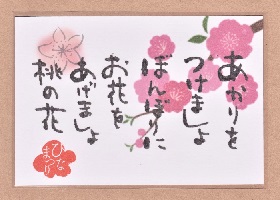 あかりを
つけましょ
ぼんぼりに
お花を
あげましょ
桃の花
ひな
まつり